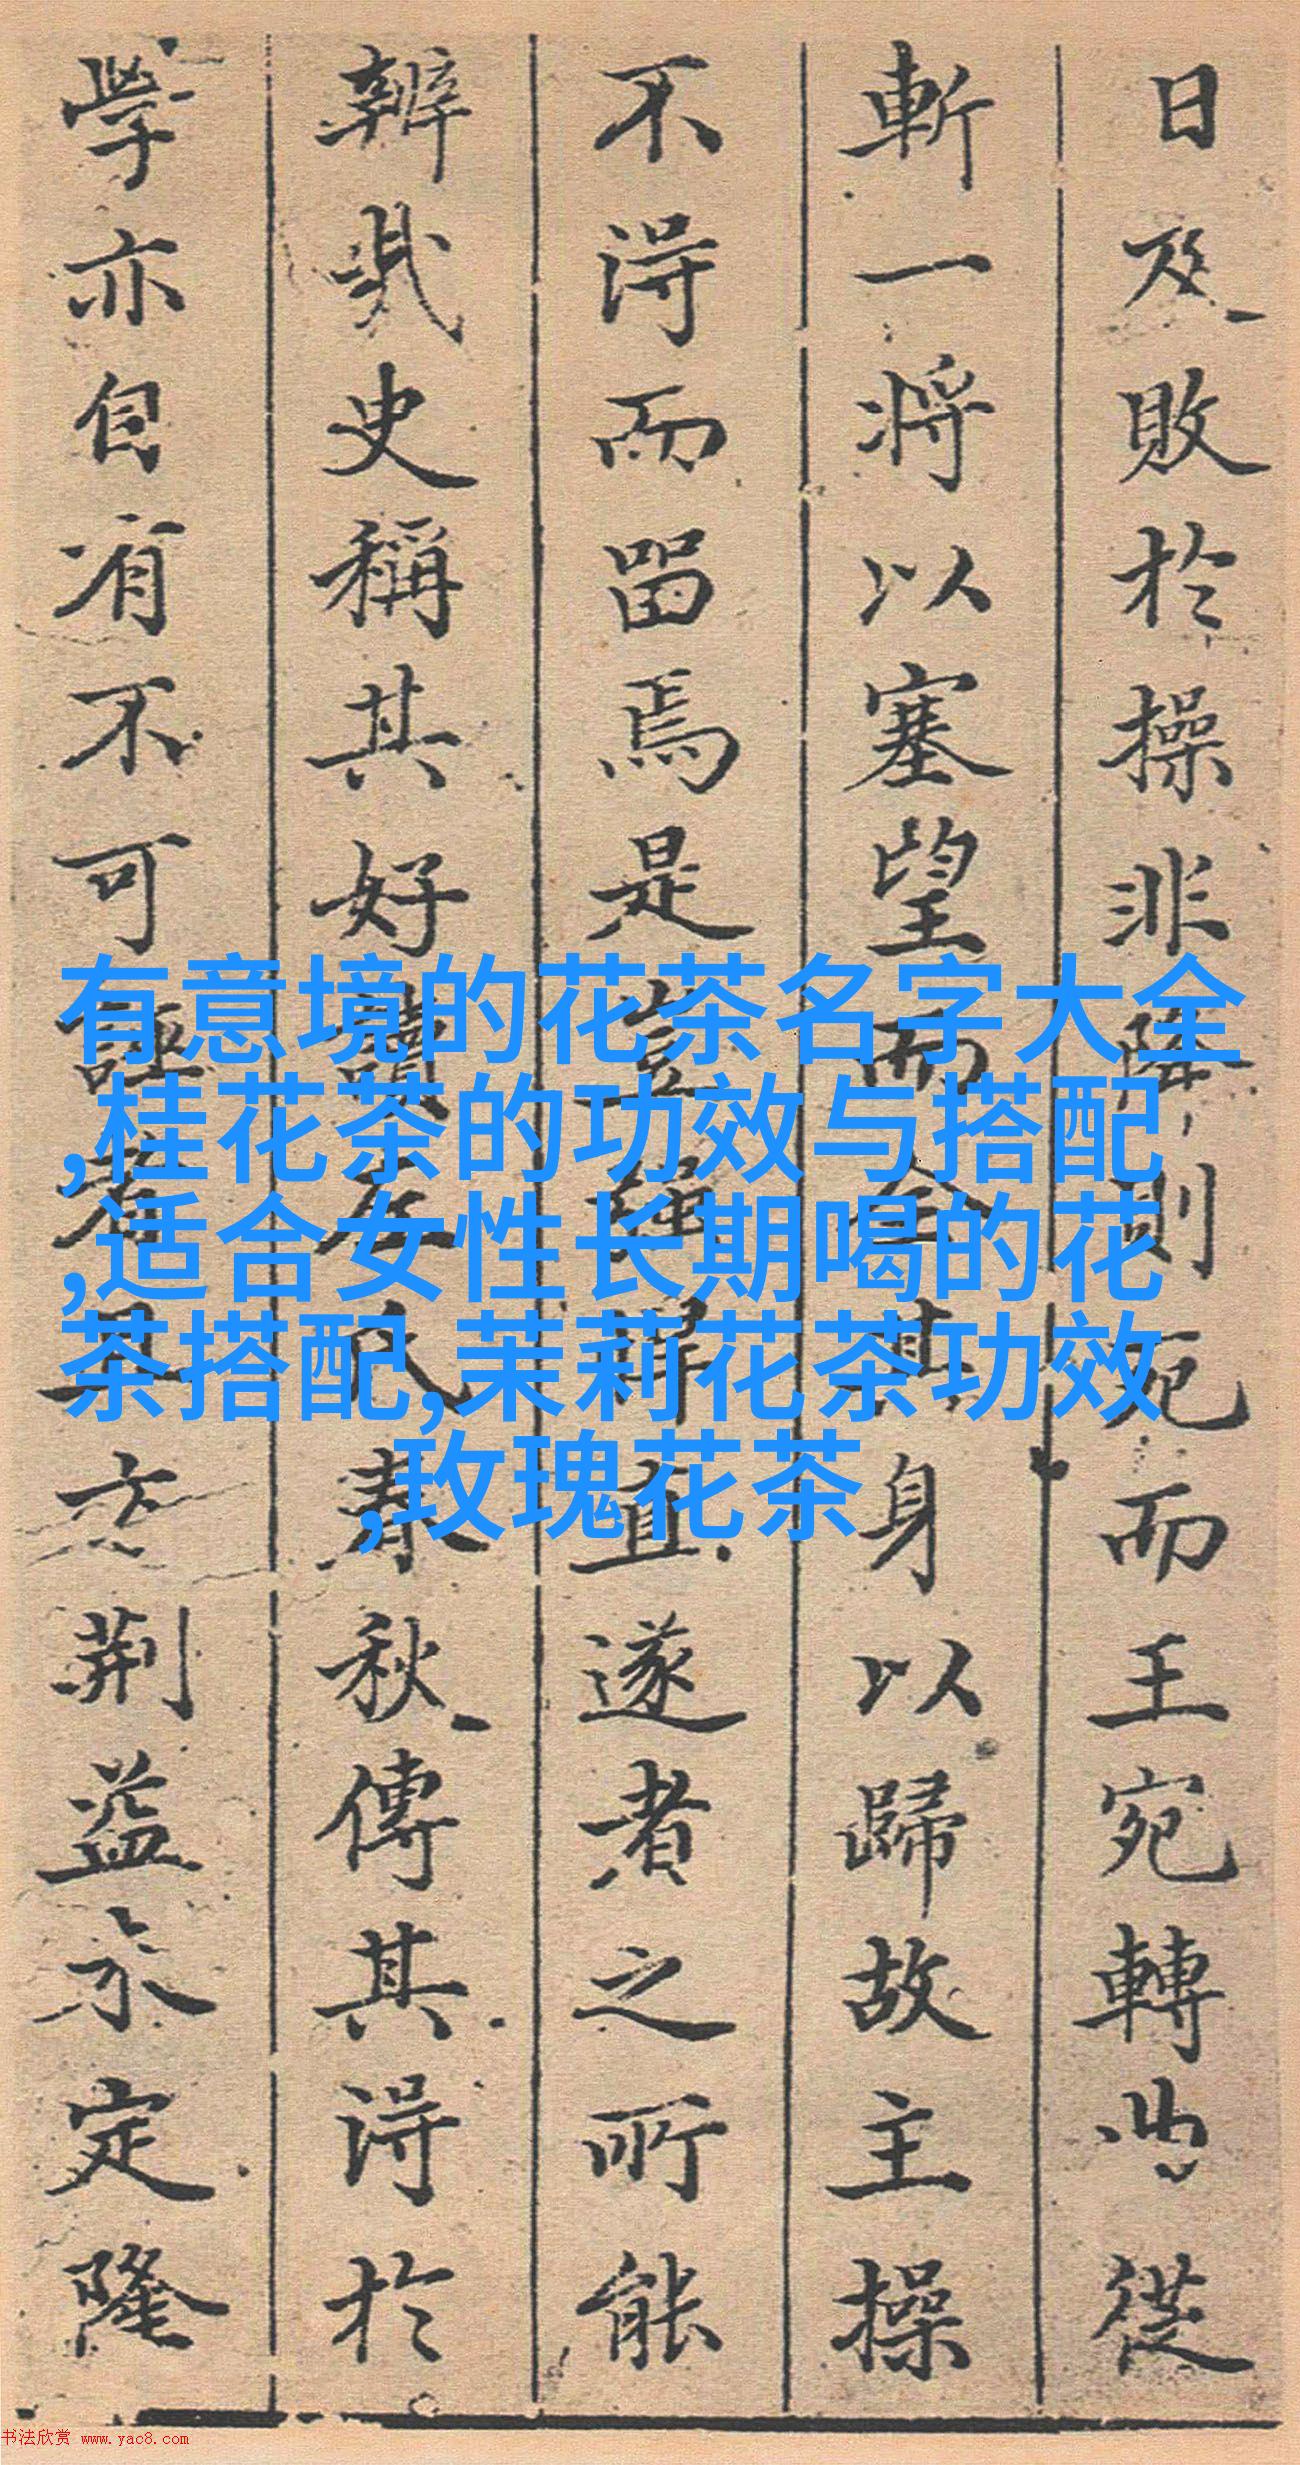 日及敗於操非降則死而王宛轉曲從
斬一将以塞望而全其身以歸故主操
不淂而留焉是豈直遂者之所能
辨哉史稱其好讀左氏春秋傳其淂於
學亦自有不可誣者且方荆益未定隆
有意境的花茶名字大全
,桂花茶的功效与搭配
,适合女性长期喝的花
茶搭配,茉莉花茶功效
,玫瑰花茶
书法欣赏 www.yac8.com